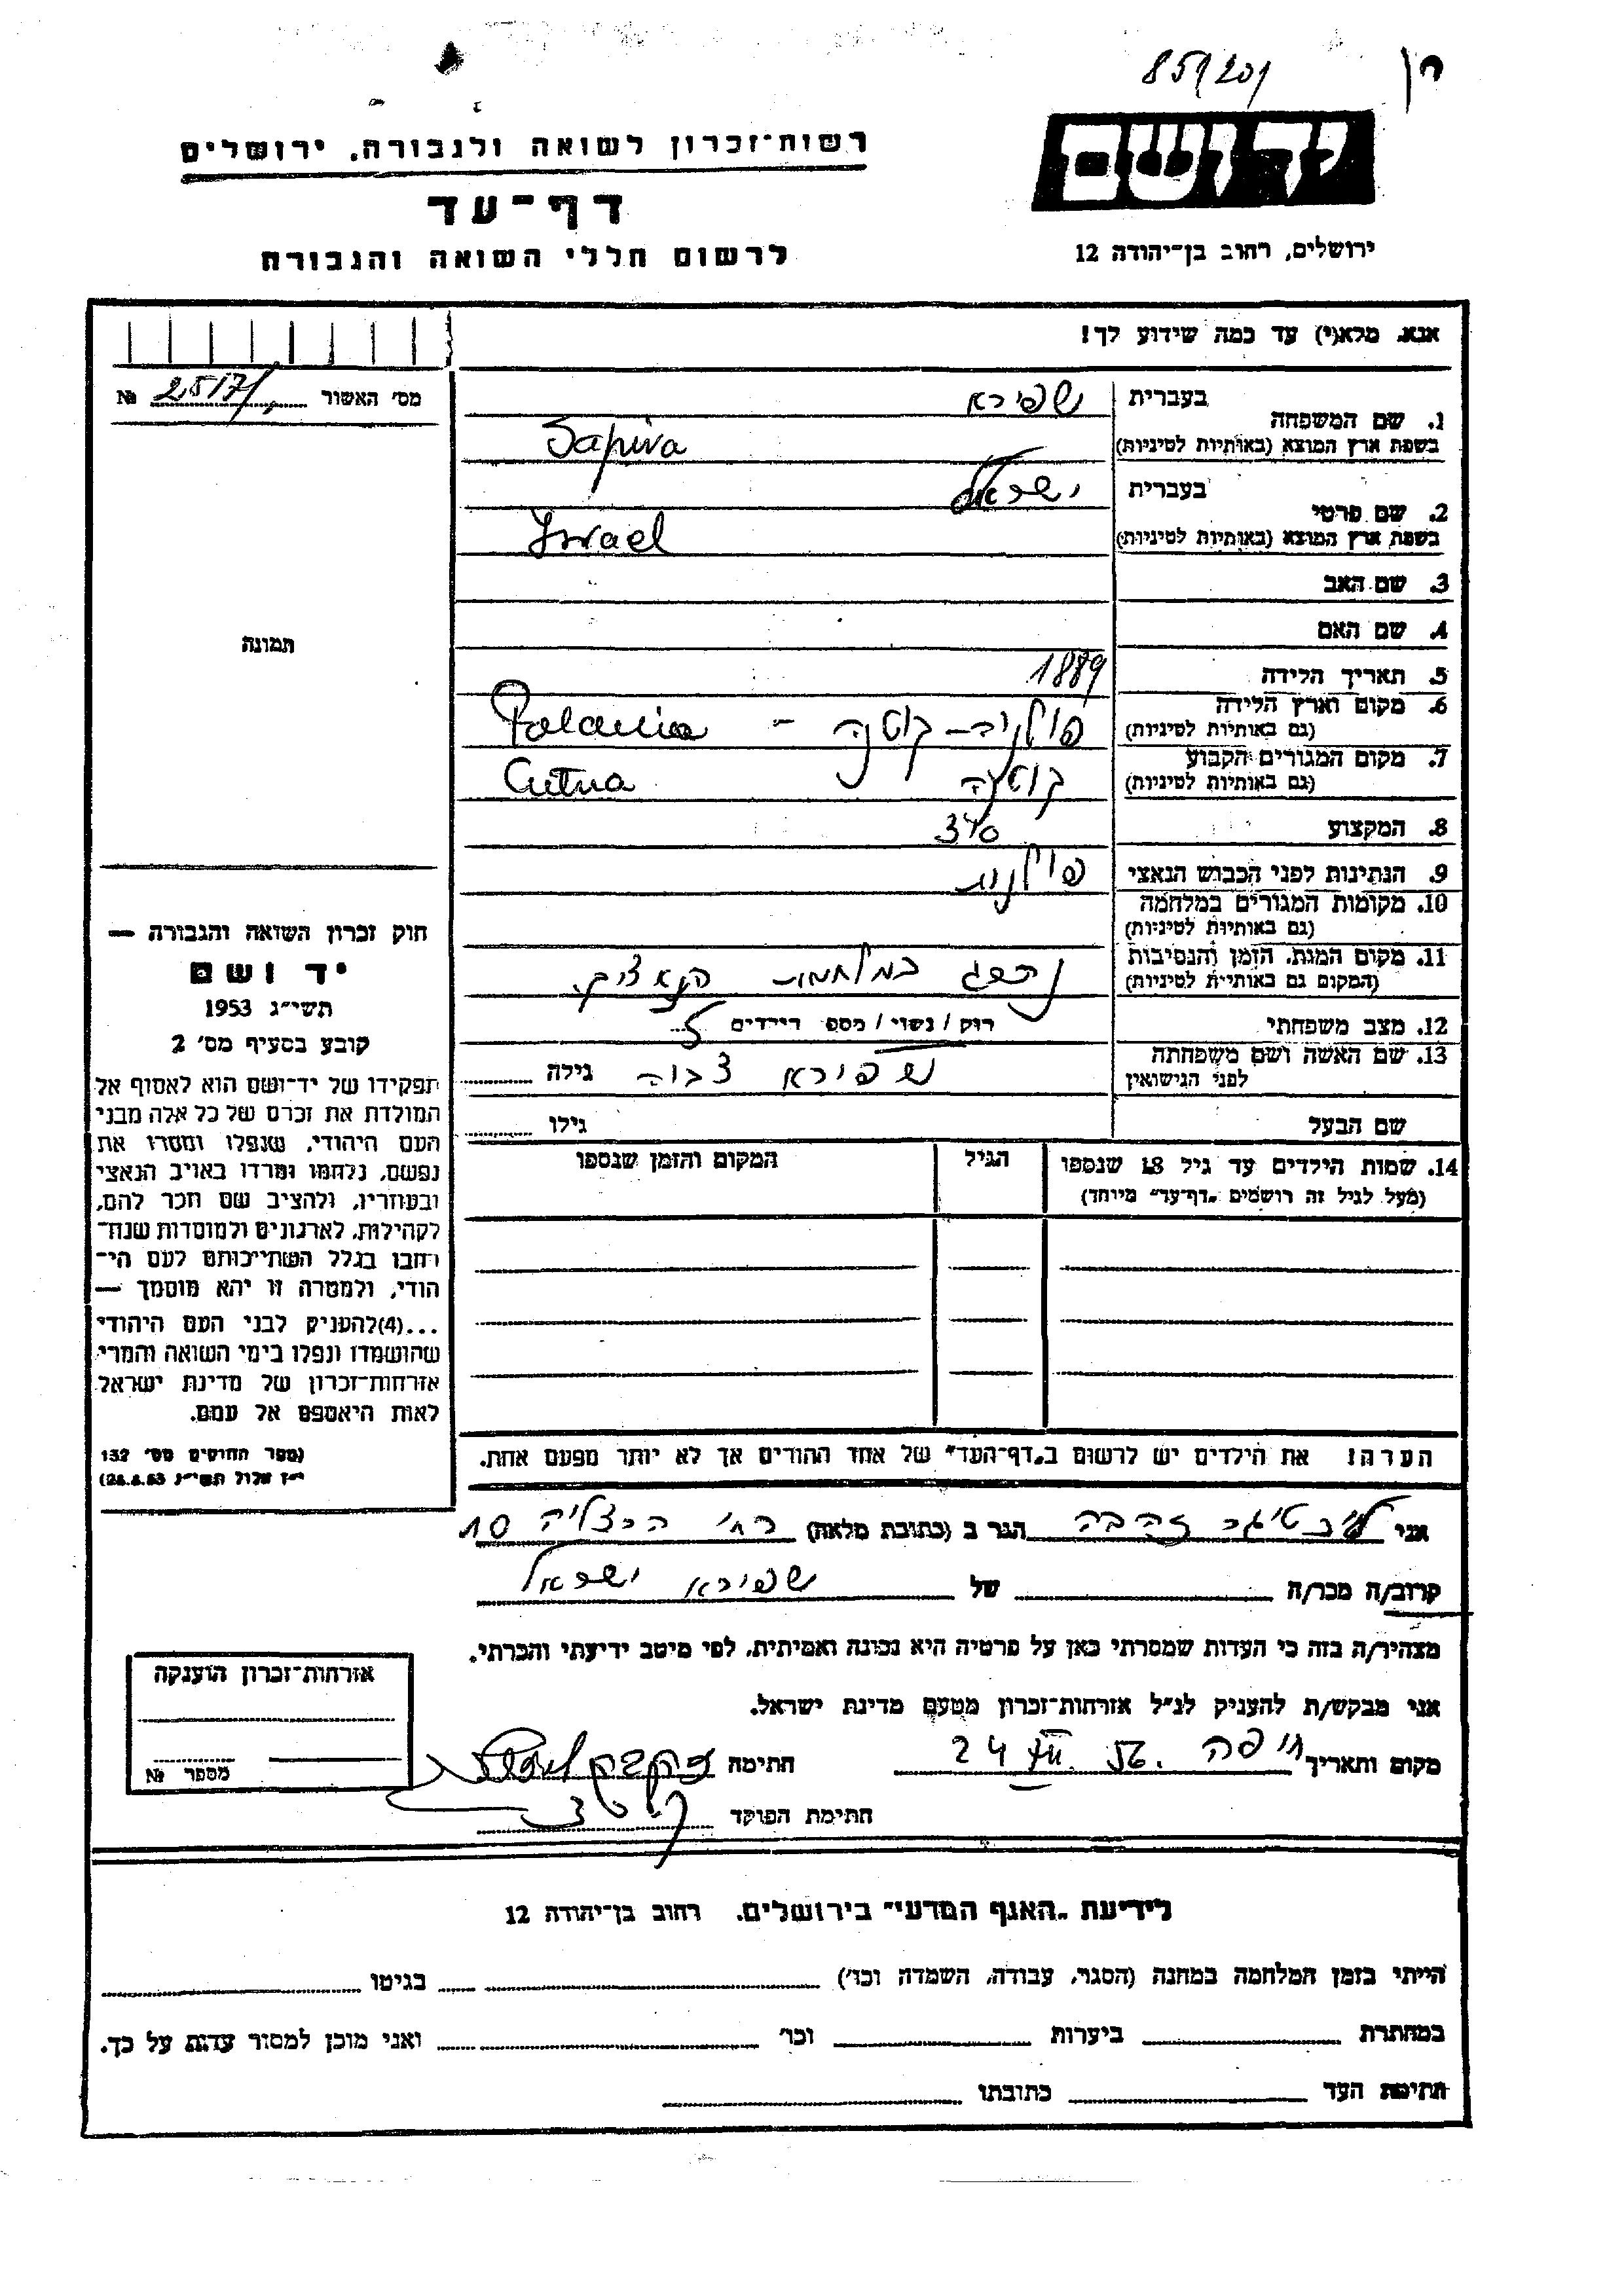 85/201
רן
יד ושם
ירושלים, רחוב בן־יהודה 12
רשות־זכרון לשואה ולגבורה, ירושלים
דף־עד
לרשום חללי השואה והגבורה
אנא, מלא(י) עד כמה שידוע לך!
מס' האשור 2517/ №
תמונה
1. שם המשפחה בעברית שפירא
בשפת ארץ המוצא (באותיות לטיניות) Sapira
2. שם פרטי בעברית ישראל
בשפת ארץ המוצא (באותיות לטיניות) Israel
3. שם האב
4. שם האם
5. תאריך הלידה 1889
6. מקום וארץ הלידה (גם באותיות לטיניות) פולניה - קוטנה - Polania
7. מקום המגורים הקבוע (גם באותיות לטיניות) קוטנה Cutna
8. המקצוע
9. הנתינות לפני הכבוש הנאצי פולנית
10. מקומות המגורים במלחמה (גם באותיות לטיניות)
11. מקום המות, הזמן והנסיבות (המקום גם באותיות לטיניות) נהרג במלחמת הנאצים
12. מצב משפחתי רווק / נשוי / מספר הילדים
13. שם האשה ושם משפחתה לפני הנישואין שפירא גילה
שם הבעל גילו
14. שמות הילדים עד גיל 18 שנספו הגיל המקום והזמן שנספו
(מעל לגיל זה רושמים "דף־עד" מיוחד)
חוק זכרון השואה והגבורה —
יד ושם
תשי"ג 1953
קובע בסעיף מס' 2
תפקידו של יד־ושם הוא לאסוף אל
המולדת את זכרם של כל אלה מבני
העם היהודי, שנפלו ומסרו את
נפשם, נלחמו ומרדו באויב הנאצי
ובעוזריו, ולהציב שם וזכר להם,
לקהילות, לארגונים ולמוסדות שנח־
רבו בגלל השתייכותם לעם הי־
הודי, ולמטרה זו יהא מוסמך —
...(4)להעניק לבני העם היהודי
שהושמדו ונפלו בימי השואה והמרי
אזרחות־זכרון של מדינת ישראל
לאות היאספם אל עמם.
(ספר החוקים מס' 132
י"ז אלול תשי"ג 28.8.53)
הערה: את הילדים יש לרשום ב"דף־העד" של אחד ההורים אך לא יותר מפעם אחת.
אני זהבה הגר ב (כתובת מלאה) רח' הרצליה 10
קרוב/ה מכר/ה של שפירא ישראל
מצהיר/ה בזה כי העדות שמסרתי כאן על פרטיה היא נכונה ואמיתית, לפי מיטב ידיעתי והכרתי.
אני מבקש/ת להעניק לנ"ל אזרחות־זכרון מטעם מדינת ישראל.
מקום ותאריך חיפה 24 חתימה
חתימת הפוקד
אזרחות־זכרון הוענקה
מספר №
לידיעת "האגף המדעי" בירושלים, רחוב בן־יהודה 12
הייתי בזמן המלחמה במחנה (הסגר, עבודה, השמדה וכו') בגיטו
במחתרת ביערות וכו' ואני מוכן למסור עדות על כך.
חתימת העד כתובתו